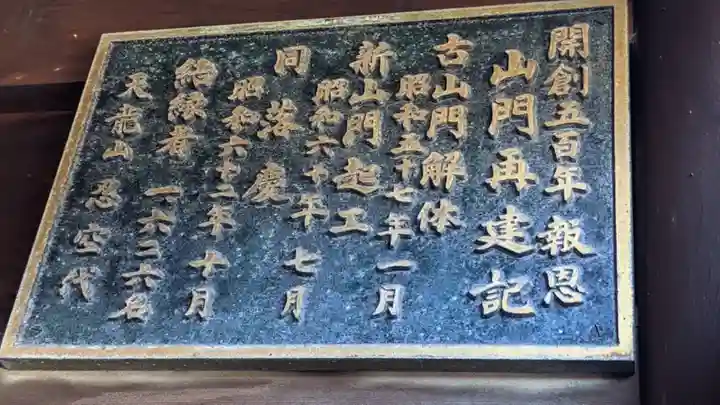 開創五百年報恩
山門再建記
古山門解体
昭和五十七年一月
新山門起工
昭和六十年七月
同落慶
昭和六十二年十月
結縁者一六二六名
天龍山忍空代